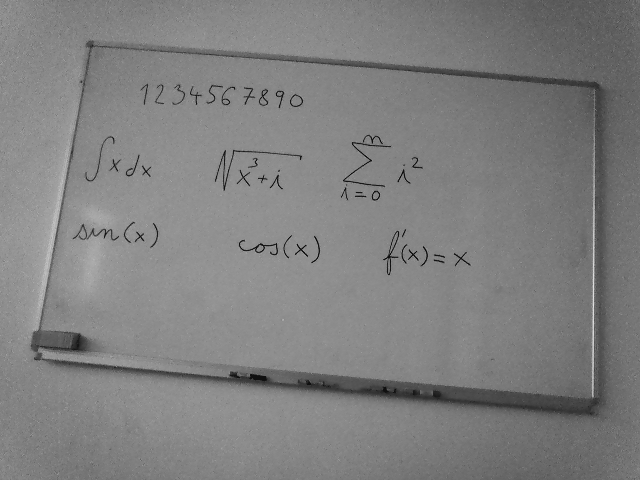 1234567890
∫x dx √(x³+i) ∑_{i=0}^{n} i²
sin(x) cos(x) f'(x)=x